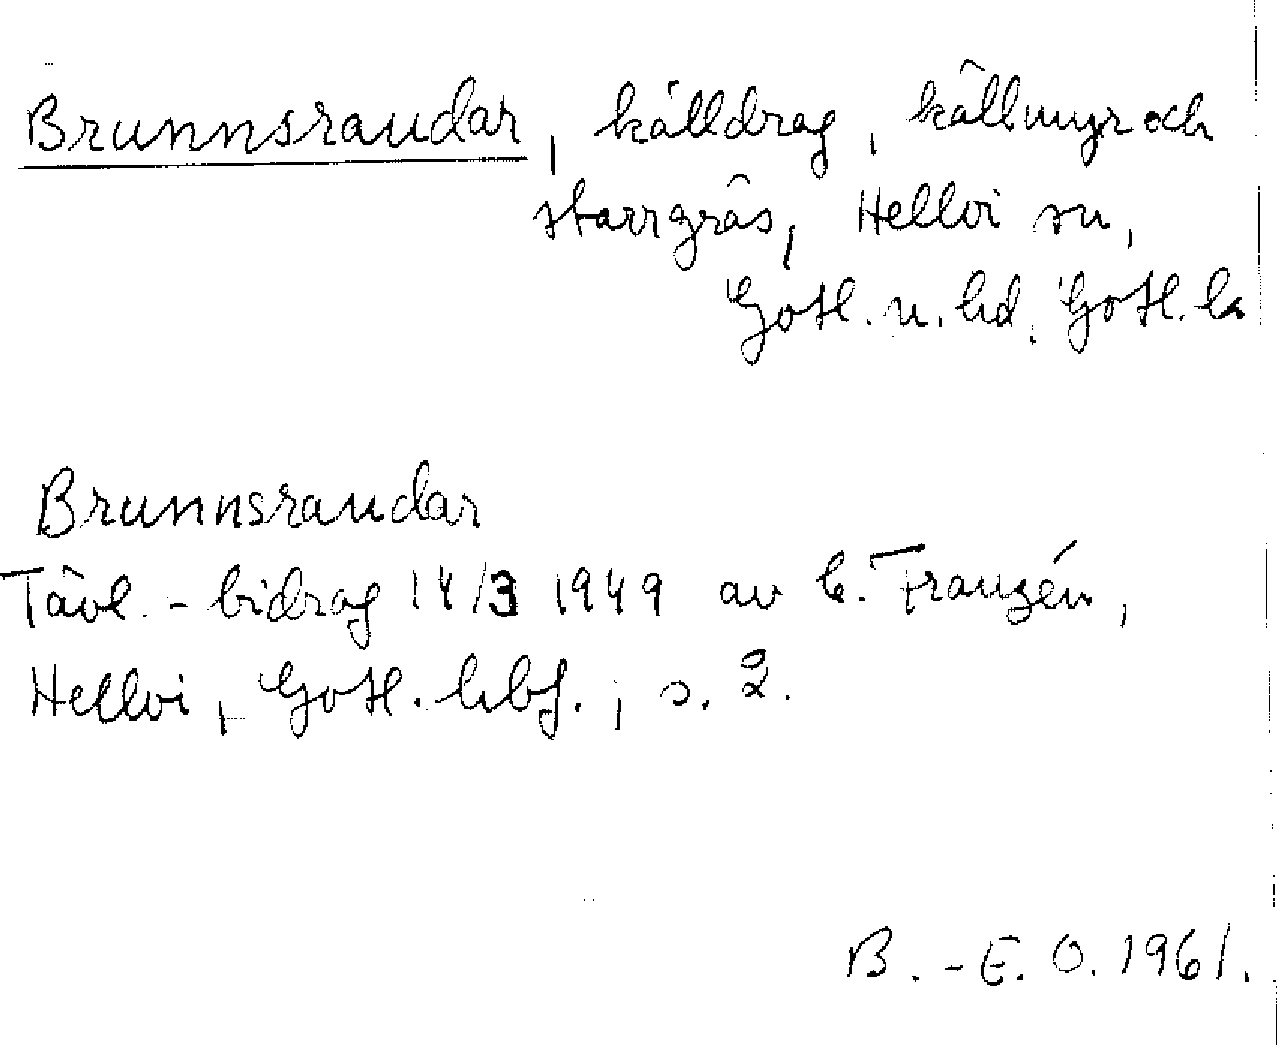 Brunnsraudar, källdrag, källmyr och
starrgräs, Hellvi sn,
Gotl. n. hd. Gotl. la
Brunnsraudar
Tävl.-bidrag 14/3 1949 av C. Franzén,
Hellvi, Gotl. hbf., s. 2.
B.-E. O. 1961.